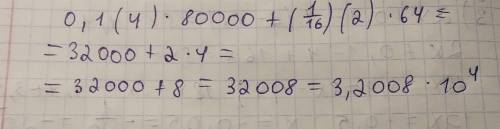 0,1(4) · 80000 + (1/16)(2) · 64 =
= 32000 + 2 · 4 =
= 32000 + 8 = 32008 = 3,2008 · 10⁴